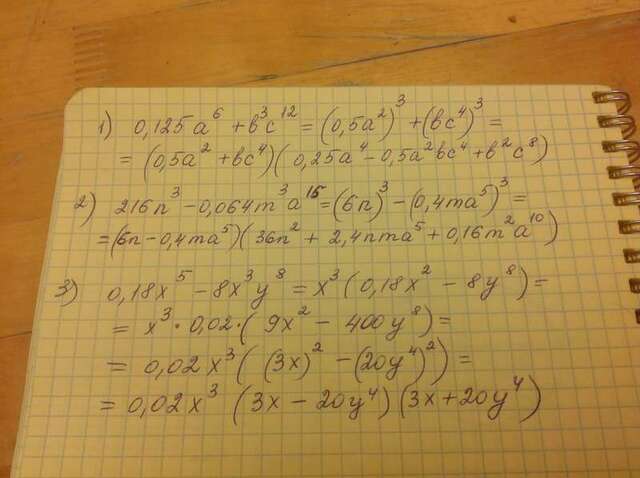 1) 0,125a⁶ + b³c¹² = (0,5a²)³ + (bc⁴)³ =
= (0,5a² + bc⁴)(0,25a⁴ - 0,5a²bc⁴ + b²c⁸)
2) 216n³ - 0,064m³a¹⁵ = (6n)³ - (0,4ma⁵)³ =
= (6n - 0,4ma⁵)(36n² + 2,4nma⁵ + 0,16m²a¹⁰)
3) 0,18x⁵ - 8x³y⁸ = x³(0,18x² - 8y⁸) =
= x³ · 0,02 · (9x² - 400y⁸) =
= 0,02x³((3x)² - (20y⁴)²) =
= 0,02x³(3x - 20y⁴)(3x + 20y⁴)